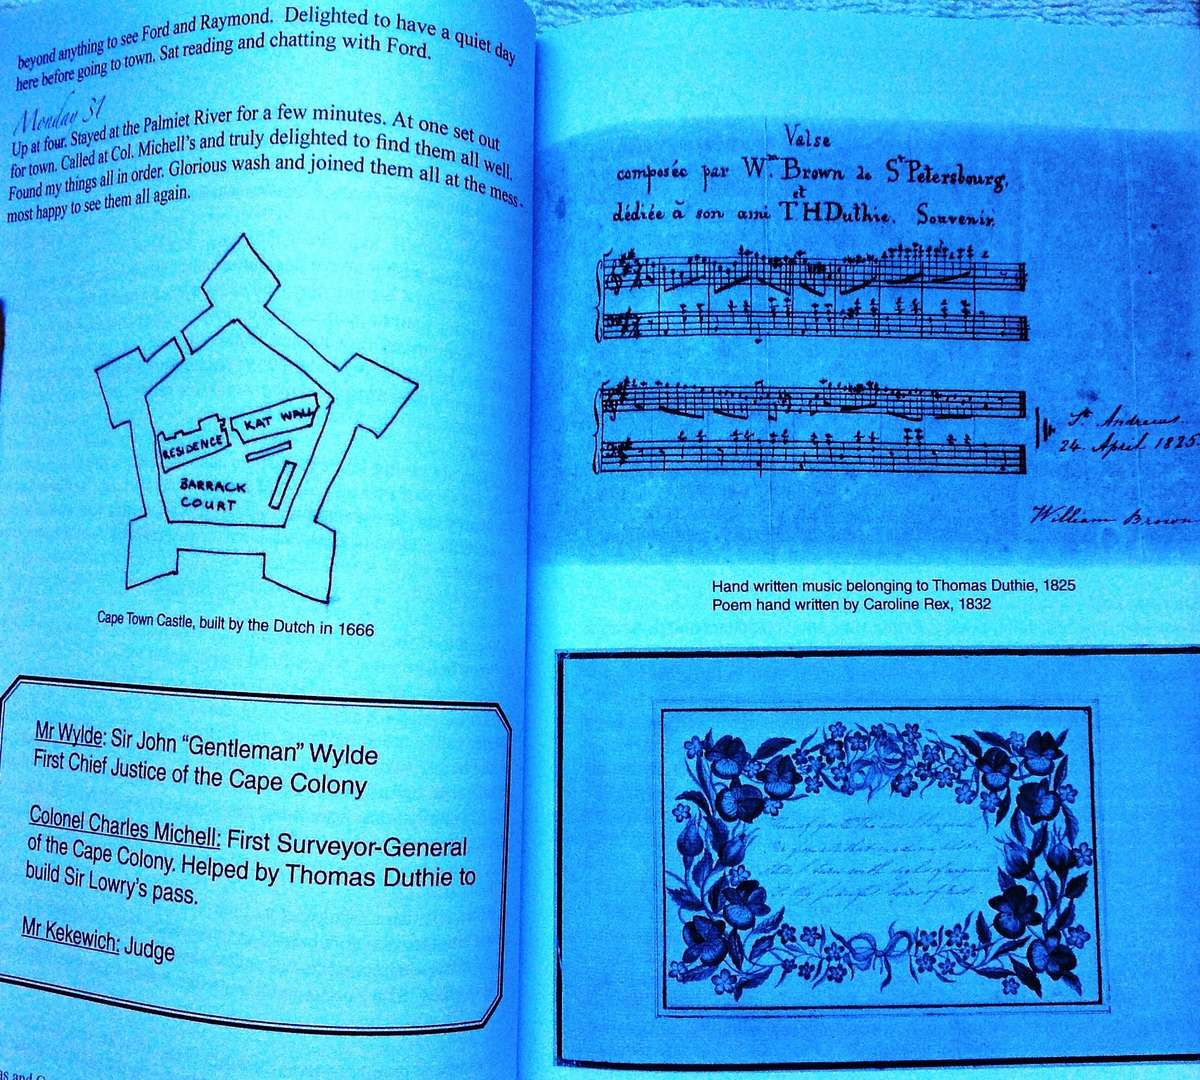 beyond anything to see Ford and Raymond. Delighted to have a quiet day
here before going to town. Sat reading and chatting with Ford.
Monday 31
Up at four. Stayed at the Palmiet River for a few minutes. At one set out
for town. Called at Col. Michell's and truly delighted to find them all well.
Found my things all in order. Glorious wash and joined them all at the mess.
most happy to see them all again.
RESIDENCE
KAT WALL
BARRACK
COURT
Cape Town Castle, built by the Dutch in 1666
Mr Wylde: Sir John “Gentleman” Wylde
First Chief Justice of the Cape Colony
Colonel Charles Michell: First Surveyor-General
of the Cape Colony. Helped by Thomas Duthie to
build Sir Lowry's pass.
Mr Kekewich: Judge
Valse
composée par Wm. Brown de St Petersbourg,
et
dédiée à son ami THDuthie. Souvenir.
St Andrews
24. April 1825
William Brown
Hand written music belonging to Thomas Duthie, 1825
Poem hand written by Caroline Rex, 1832